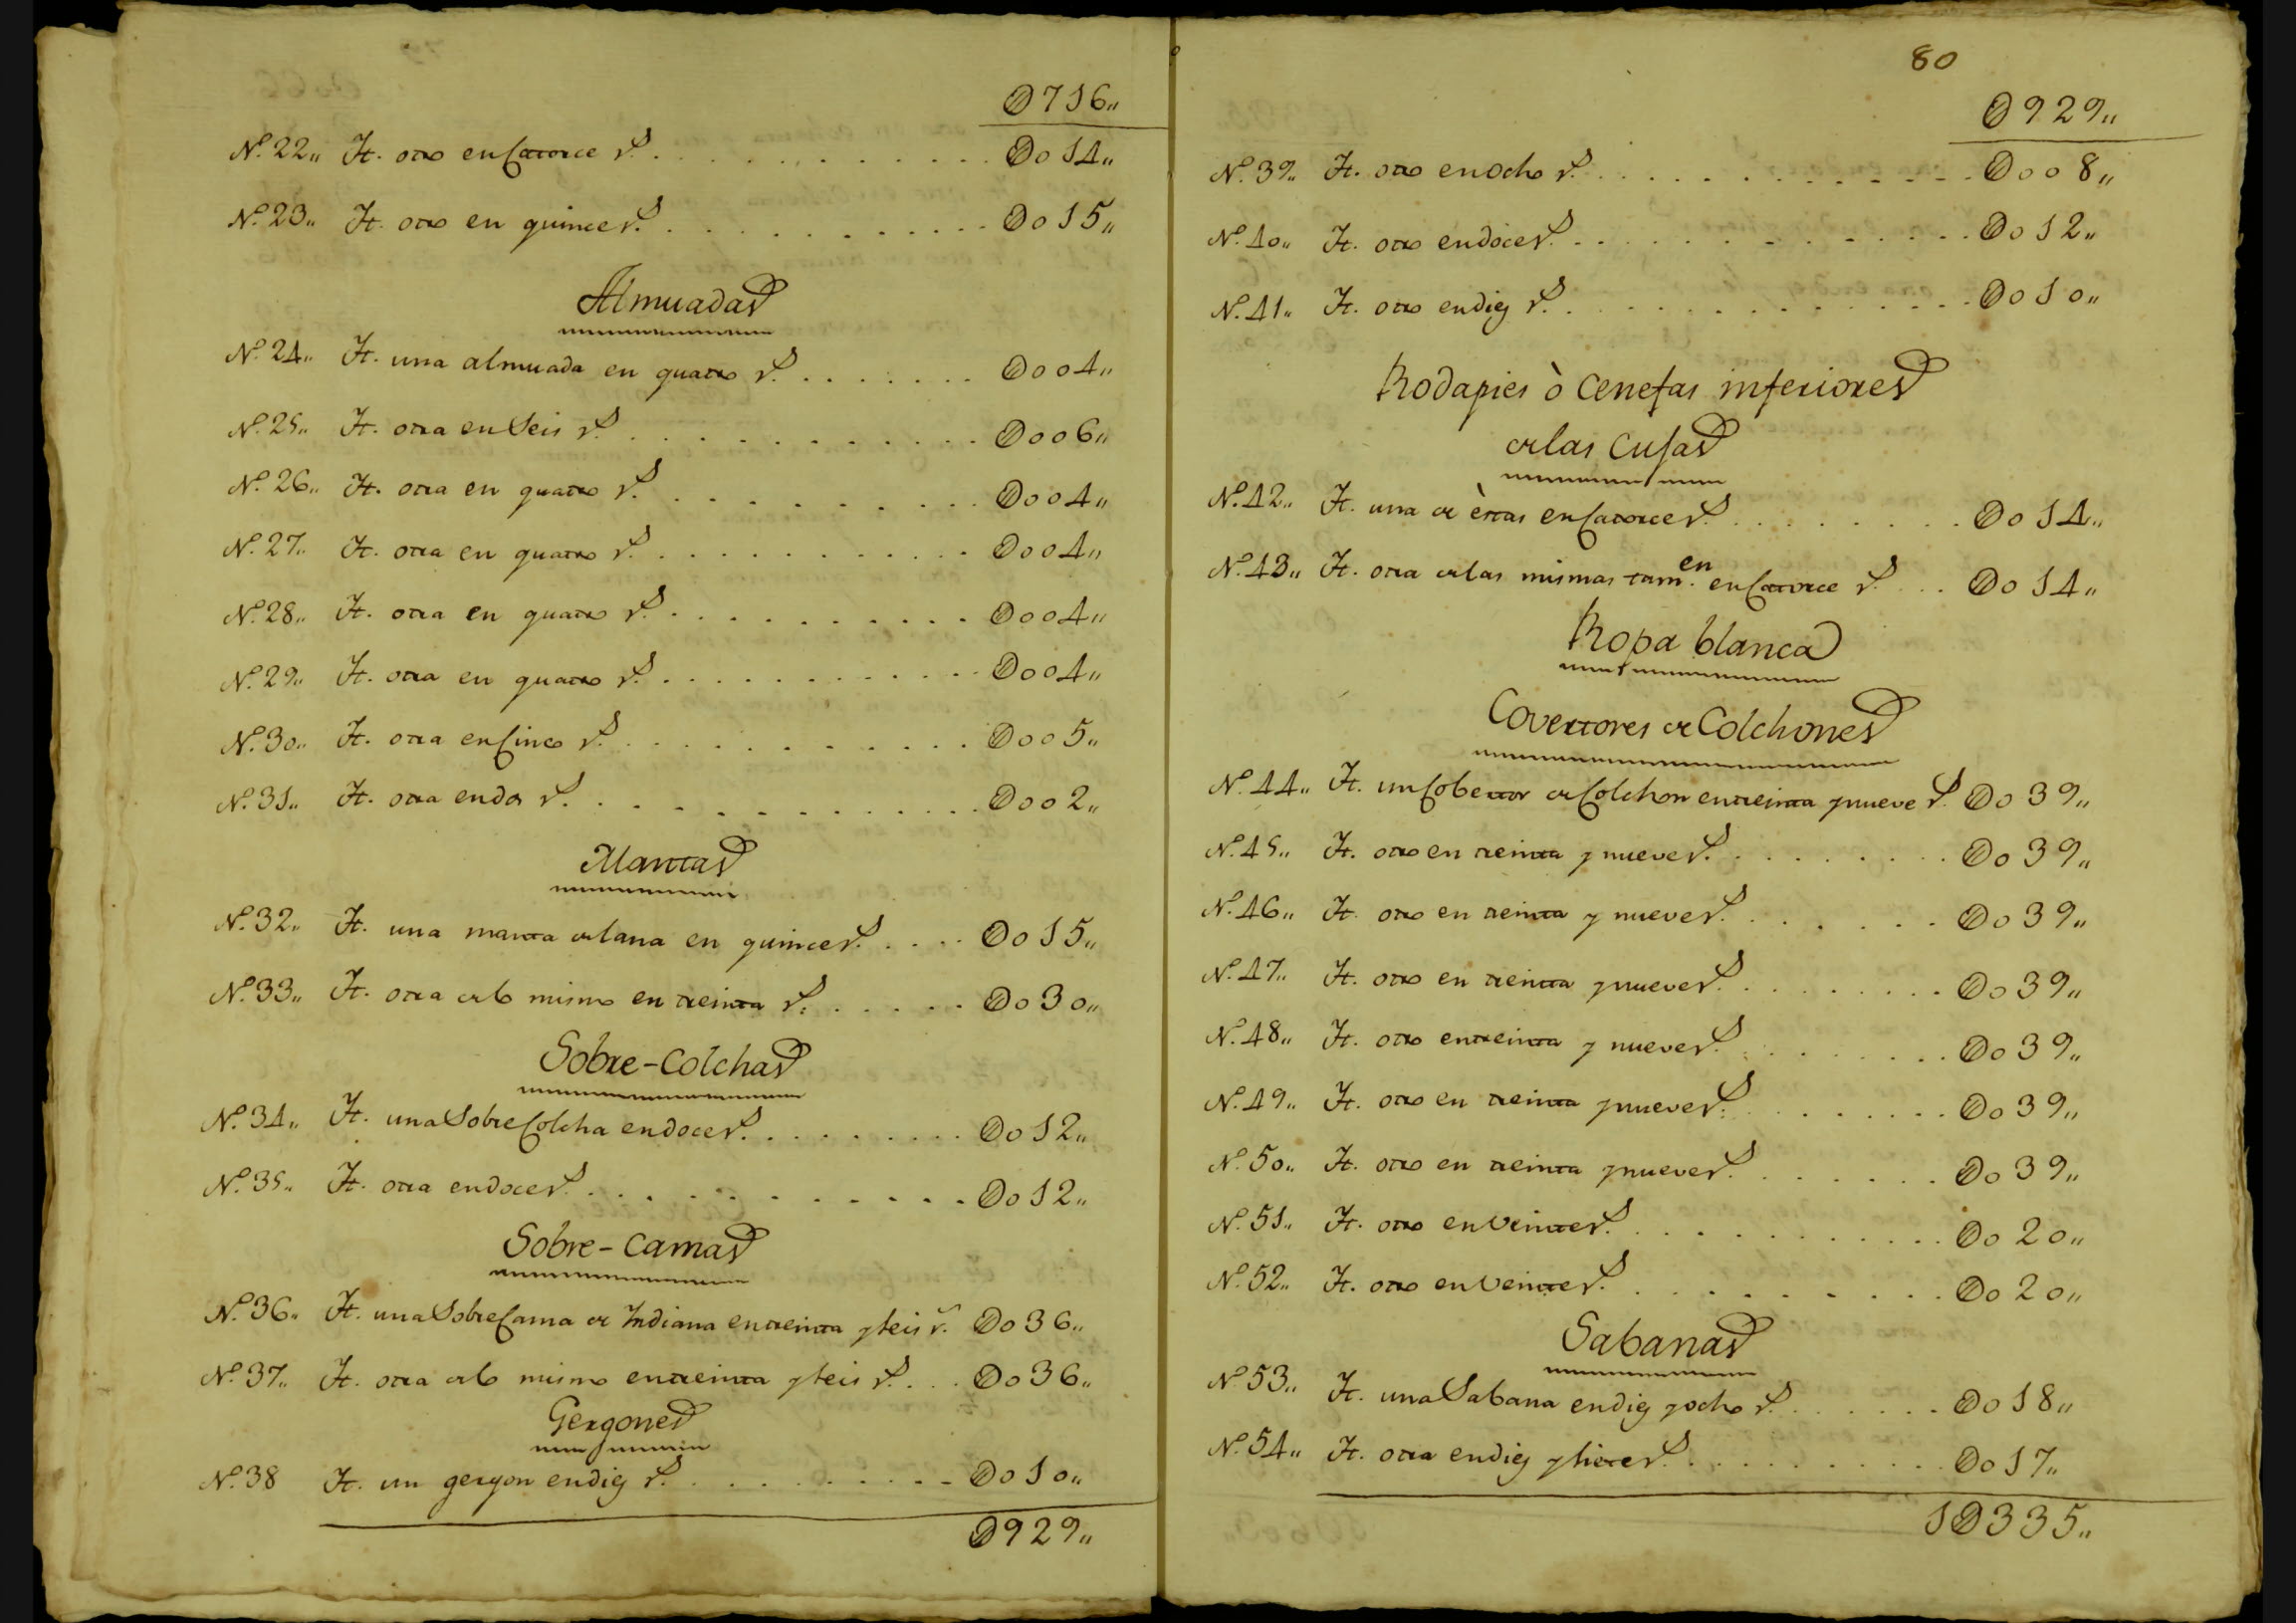 D716,,
N.º 22,, It. otro en Catorce r.s . . . . . . . . . . . . D014,,
N.º 23,, It. otro en quince r.s . . . . . . . . . . . . D015,,
Almuadas
N.º 24,, It. una almuada en quatro r.s . . . . . . . D004,,
N.º 25,, It. otra en Seis r.s . . . . . . . . . . . D006,,
N.º 26,, It. otra en quatro r.s . . . . . . . . . . D004,,
N.º 27,, It. otra en quatro r.s . . . . . . . . . . D004,,
N.º 28,, It. otra en quatro r.s . . . . . . . . . . D004,,
N.º 29,, It. otra en quatro r.s . . . . . . . . . . D004,,
N.º 30,, It. otra en Cinco r.s . . . . . . . . . . D005,,
N.º 31,, It. otra en dos r.s . . . . . . . . . . . D002,,
Mantas
N.º 32,, It. una manta de lana en quince r.s . . . . D015,,
N.º 33,, It. otra de lo mismo en treinta r.s . . . . . D030,,
Sobre-Colchas
N.º 34,, It. una Sobre Colcha en doce r.s . . . . . . . . D012,,
N.º 35,, It. otra en doce r.s . . . . . . . . . . . D012,,
Sobre-Camas
N.º 36,, It. una Sobre Cama de Indiana en treinta y seis r.s D036,,
N.º 37,, It. otra de lo mismo en treinta y seis r.s . . . D036,,
Gergones
N.º 38 It. un gergon en diez r.s . . . . . . . . . D010,,
D929,,
80
D929,,
N.º 39,, It. otro en ocho r.s . . . . . . . . . . . . D008,,
N.º 40,, It. otro en doce r.s . . . . . . . . . . . . D012,,
N.º 41,, It. otro en diez r.s . . . . . . . . . . . . D010,,
Rodapies ò Cenefas inferiores
de las Cujas
N.º 42,, It. una de èstas en Catorce r.s . . . . . . . . D014,,
N.º 43,, It. otra de las mismas tam.en en Catorce r.s . . . D014,,
Ropa blanca
Covertores de Colchones
N.º 44,, It. un Cobertor de Colchon en treinta y nueve r.s D039,,
N.º 45,, It. otro en treinta y nueve r.s . . . . . . . . D039,,
N.º 46,, It. otro en treinta y nueve r.s . . . . . . . D039,,
N.º 47,, It. otro en treinta y nueve r.s . . . . . . . . D039,,
N.º 48,, It. otro en treinta y nueve r.s . . . . . . . . D039,,
N.º 49,, It. otro en treinta y nueve r.s . . . . . . . . D039,,
N.º 50,, It. otro en treinta y nueve r.s . . . . . . . D039,,
N.º 51,, It. otro en veinte r.s . . . . . . . . . . D020,,
N.º 52,, It. otro en veinte r.s . . . . . . . . . . D020,,
Sabanas
N.º 53,, It. una Sabana en diez y ocho r.s . . . . . . D018,,
N.º 54,, It. otra en diez y siete r.s . . . . . . . . . D017,,
1D335,,